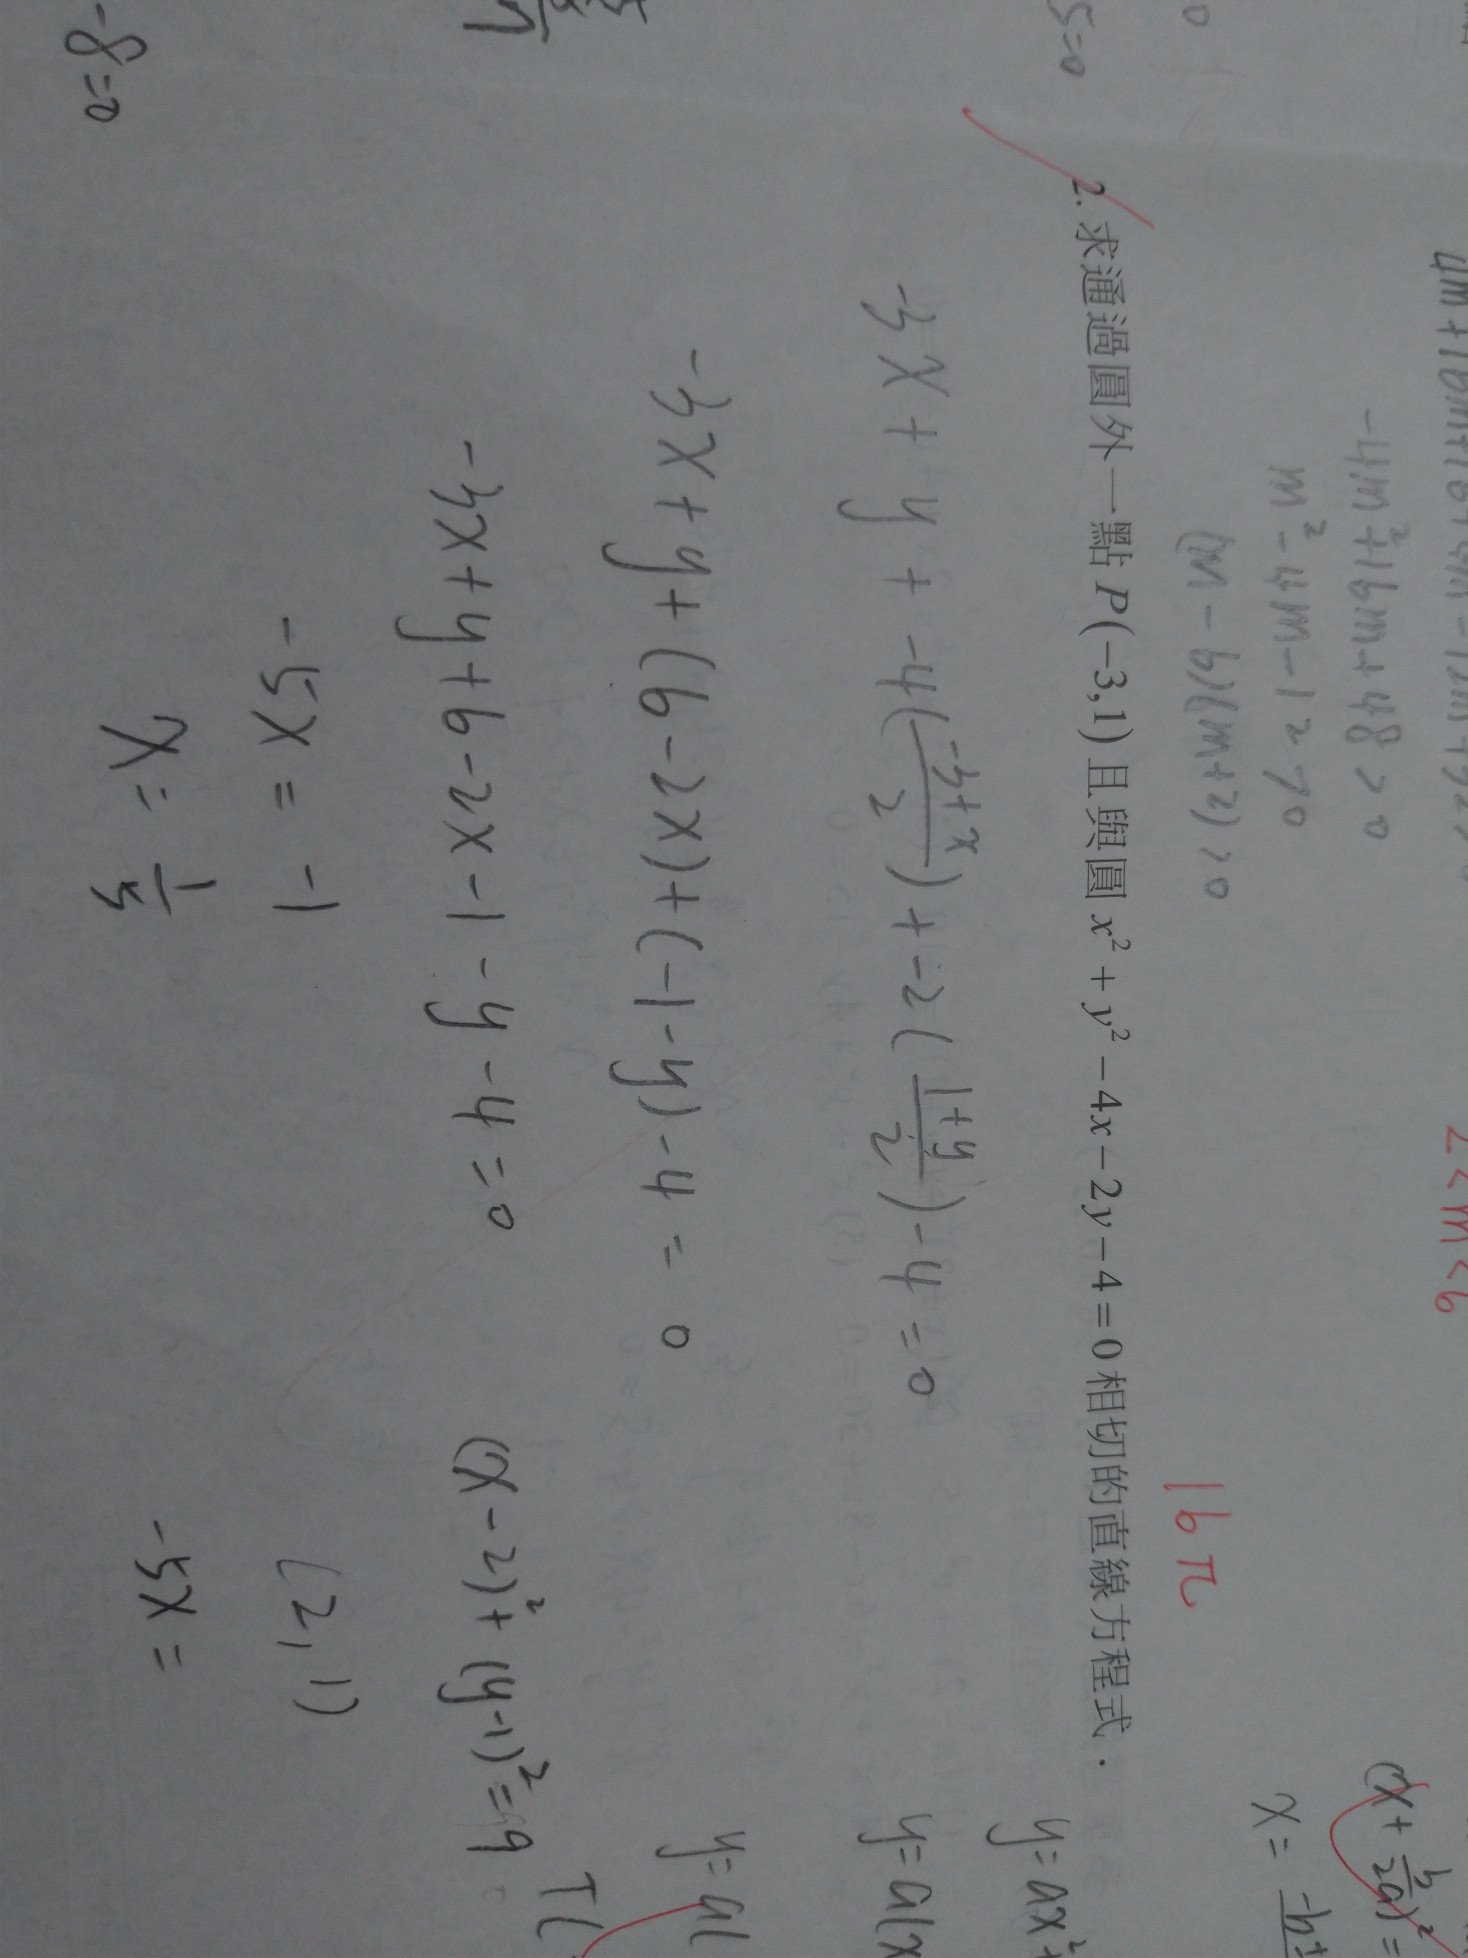 -4m²+16m+48>0
m²-4m-12>0
(m-6)(m+2)>0
2<m<6
16π
5=0
2. 求通過圓外一點 P(−3,1) 且與圓 x² + y² − 4x − 2y − 4 = 0 相切的直線方程式．
-3x+y+-4(\frac{-3+x}{2})+-2(\frac{1+y}{2})-4=0
-3x+y+(6-2x)+(-1-y)-4=0
-3x+y+6-2x-1-y-4=0
-5x=-1
x=\frac{1}{5}
(x-2)²+(y-1)²=9
(2,1)
-5x=
-8=0
(x+\frac{b}{2a})²=
y=ax²+
y=a(x
y=a(